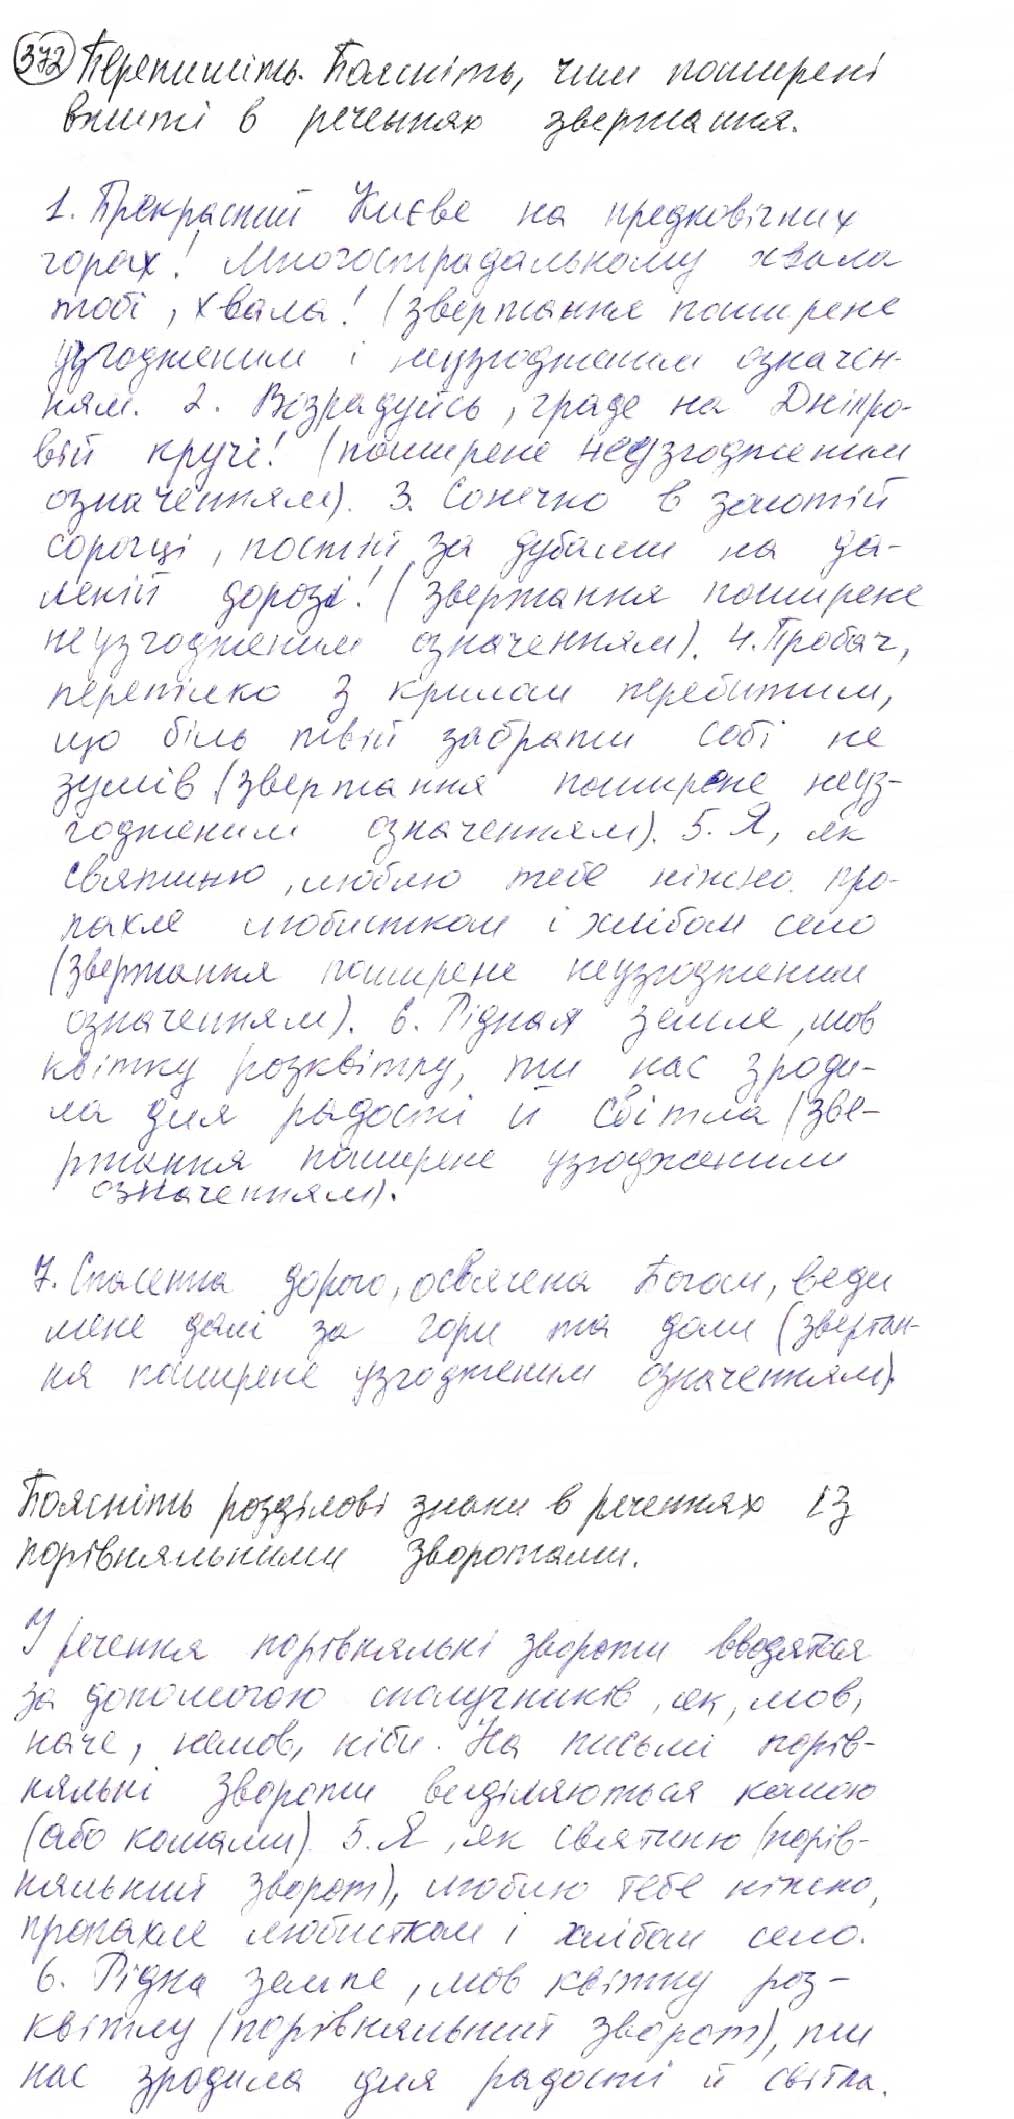 372 Перепишіть. Поясніть, чим поширені
вжиті в реченнях звертання.
1. Прекрасний Києве на предковічних
горах! Многострадальному хвала
тобі, хвала! (звертання поширене
узгодженим і неузгодженим означен-
ням. 2. Возрадуйсь, граде на Дніпро-
вій кручі! (поширене неузгодженим
означенням). 3. Сонечко в золотій
сорочці, постій за дубами на да-
лекій дорозі! (звертання поширене
неузгодженим означенням). 4. Пробач,
перепілко з крилом перебитим,
що біль твій забрати собі не
зумів (звертання поширене неуз-
годженим означенням). 5. Я, як
святиню, люблю тебе ніжно про-
пахле любистком і хлібом село
(звертання поширене неузгодженим
означенням). 6. Рідная земле, мов
квітку розквітлу, ти нас зроди-
ла для радості й світла (зве-
ртання поширене узгодженим
означенням).
7. Спасенна дорого, освячена Богом, веди
мене далі за гори та доли (звертан-
ня поширене узгодженим означенням).
Поясніть розділові знаки в реченнях із
порівняльними зворотами.
У речення порівняльні звороти вводяться
за допомогою сполучників, як, мов,
наче, немов, ніби. На письмі порів-
няльні звороти виділяються комою
(або комами). 5. Я, як святиню (порів-
няльний зворот), люблю тебе ніжно,
пропахле любистком і хлібом село.
6. Рідна земле, мов квітку роз-
квітлу (порівняльний зворот), ти
нас зродила для радості й світла.